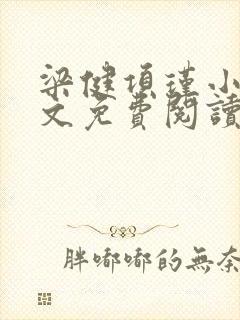 梁健項瑾小
文免費閱讀
胖嘟嘟的無奈